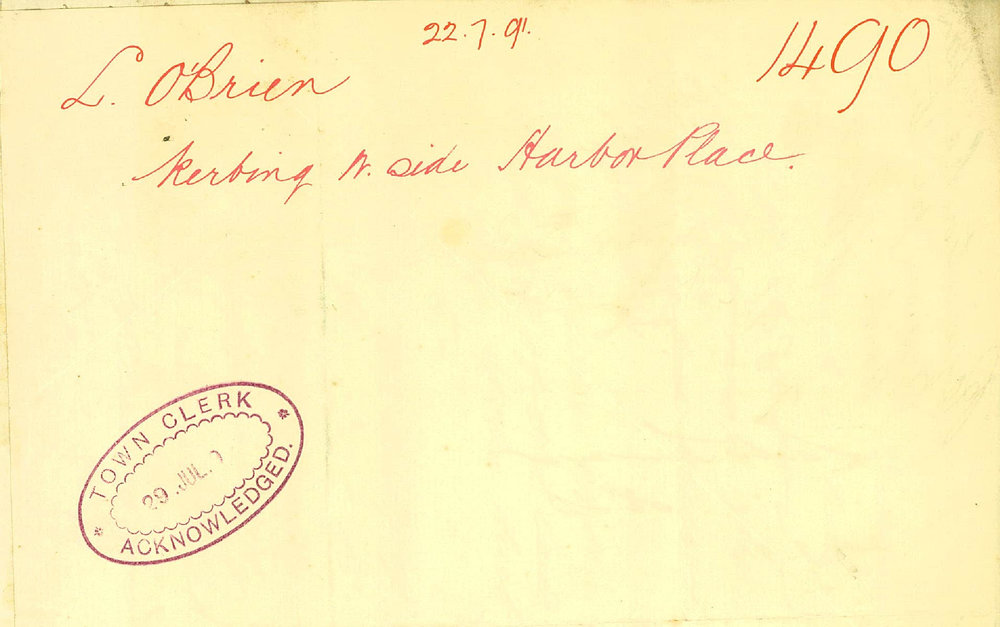 22.7.91.
1490
L. O'Brien
kerbing N. side Harbor Place.
TOWN CLERK
29 JUL.
ACKNOWLEDGED.